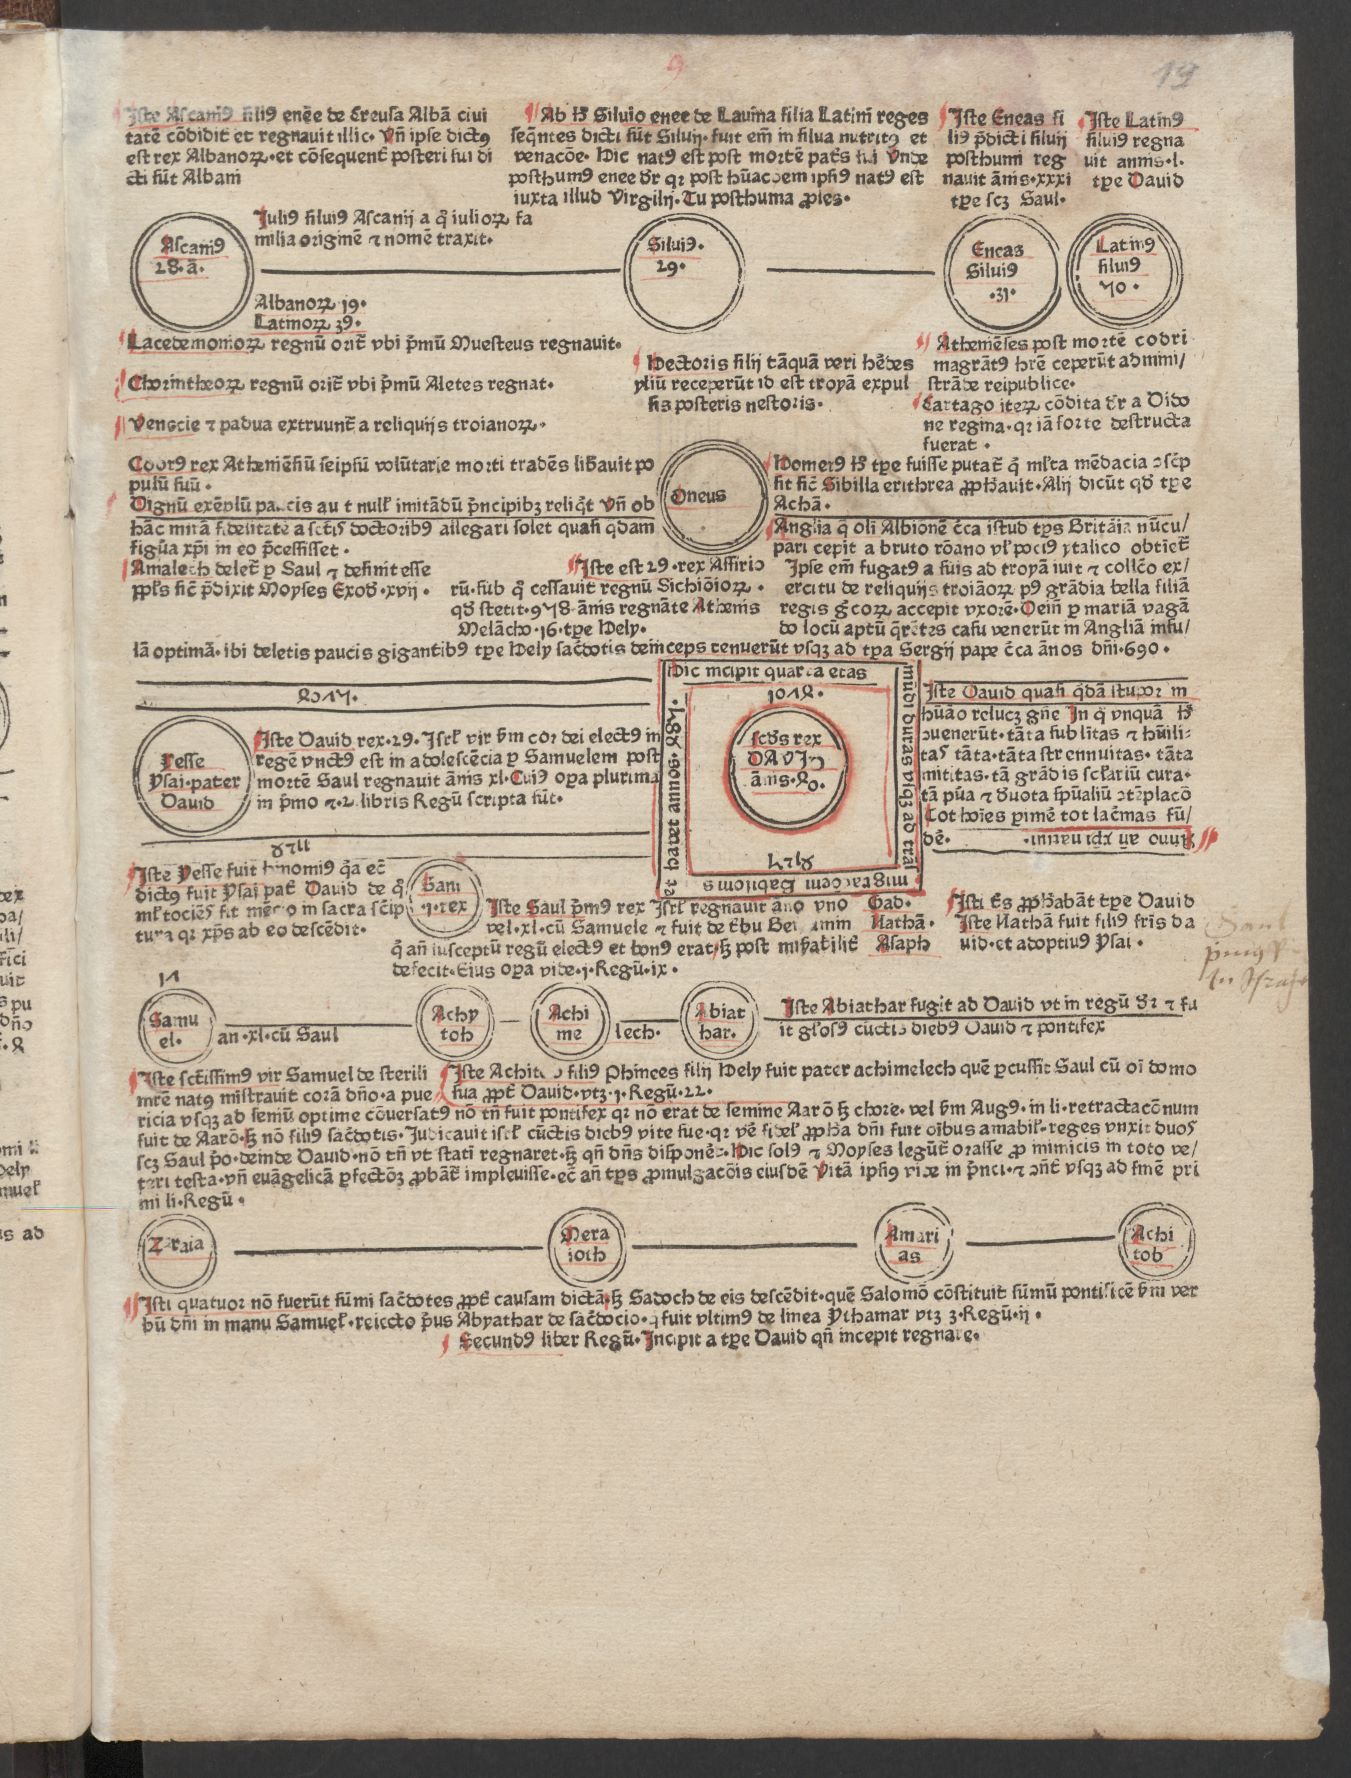 9
19
Iste Ascani9 fili9 enēe de Creusa Albā ciui
tatē cōdidit et regnauit illic. Vn̄ ipse dict9
est rex Albanoꝝ. et cōsequent̄ posteri sui di
cti sūt Albani
Ab h̄ Siluio enee de Lauina filia Latini reges
seqn̄tes dicti sūt Siluij. fuit em̄ in silua nutrit9 et
venacōe. Hic nat9 est post mortē pat̄s sui Vnde
posthum9 enee dr̄ qꝛ post hūacōem ipsi9 nat9 est
iuxta illud Virgilij. Tu posthuma ꝓles.
Iste Eneas fi
li9 p̄dicti siluij
posthumi reg
nauit ānis. xxxi
tꝑe scꝫ Saul.
Iste Latin9
silui9 regna
uit annis. l.
tꝑe Dauid
Iuli9 silui9 Ascanij a q̄ iulioꝝ fa
milia originē ⁊ nomē traxit.
Ascani9
28. ā.
Silui9.
29.
Eneas
Silui9
.31.
Latin9
silui9
70.
Albanoꝝ 19.
Latinoꝝ 39.
Lacedemonioꝝ regnū orit̄ vbi p̄mū Muesteus regnauit.
Chorintheoꝝ regnū orit̄ vbi p̄mū Aletes regnat.
Venecie ⁊ padua extruunt̄ a reliquijs troianoꝝ.
Hectoris filij tāquā veri hēdes
yliū receperūt id est troyā expul
sis posteris nestoris.
Atheniēses post mortē codri
magrāt9 hr̄e ceperūt ad mini/
strāde reipublice.
Cartago iteꝝ cōdita dr̄ a Dido
ne regina. qꝛ iā forte destructa
fuerat.
Codr9 rex Atheniēsiū seipsū volūtarie morti tradēs lib̄auit po
pulū suū.
Dignū exēplū paucis aut null' imitādū p̄ncipibꝫ reliq̄t Vn̄ ob
hāc mirā fidelitatē a sct̄is doctorib9 allegari solet quasi qdam
figura xp̄i in eo p̄cessisset.
Oneus
Homer9 h̄ tꝑe fuisse putat̄ q̄ ml'ta mēdacia ↄsc̄p
sit sic̄ Sibilla erithrea ꝓph̄auit. Alij dicūt qd̄ tꝑe
Achā.
Anglia q̄ oli Albionē c̄ca istud tꝑs Britāia nūcu/
pari cepit a bruto rōano vl' poci9 ytalico obtiet̄
Amalech delet̄ ꝑ Saul ⁊ definit esse
ppl's sic̄ p̄dixit Moyses Exod̄. xvij.
Iste est 29. rex Assirio
rū. sub q̄ cessauit regnū Sichiōioꝝ.
qd̄ stetit. 978 ānis regnāte Athenis
Melācho. 16. tꝑe Hely.
Ipse em̄ fugat9 a suis ad troyā iuit ⁊ collc̄o ex/
ercitu de reliquijs troiāoꝝ p9 grādia bella filiā
regis gcoꝝ accepit vxorē. Dein̄ ꝑ mariā vagā
do locū aptū q̄rētes casu venerūt in Angliā insu/
lā optimā. ibi deletis paucis gigantib9 tꝑe Hely sac̄dotis deinceps tenuerūt vsqꝫ ad tꝑa Sergij pape c̄ca ānos dn̄i. 690.
Hic incipit quarta etas
mūdi durās vsqꝫ ad trāſ
migracōem Babilonis
et habet annos. 887.
1018.
scd̄s rex
DAVID
ānis. 40.
Iesse
Ysai. pater
Dauid
Iste Dauid rex. 29. Isrl' vir s̄m cor dei elect9 in
regē vnct9 est in adolescēcia ꝑ Samuelem post
mortē Saul regnauit ānis xl. Cui9 oꝑa plurima
in p̄mo ⁊. 2. libris Regū scripta sūt.
Iste Dauid quasi q̄dā stupor in
hūāo relucꝫ gn̄e In q̄ vnquā h̄
ↄuenerūt. tāta sublitas ⁊ hūili-
tas tāta. tāta strennuitas. tāta
mititas. tā grādis scl'ariū cura.
tā pura ⁊ deuota spūaliū ↄtēplacō
Tot hoīes ꝑimē tot lac̄mas fū/
dē.
Anno an̄ xp̄i natiui.
Iste Yesse fuit binomi9 q̄a ec̄
dict9 fuit Ysai pat̄ Dauid de q̄
ml'tociēs fit mēcio in sacra sc̄ip
tura qꝛ xp̄s ab eo descēdit.
Saul
.1. rex
Iste Saul p̄m9 rex Isrl' regnauit āno vno
vel. xl. cū Samuele ⁊ fuit de t̄bu Beniamin
q̄ an̄ susceptū regnū elect9 et bon9 erat. sꝫ post mis̄abilit̄
defecit. Eius oꝑa vide. 1. Regū. ix.
Gad.
Nathā.
Asaph
Isti t̄s ꝓph̄abāt tꝑe Dauid
Iste Nathā fuit fili9 fr̄is da
uid. et adoptiu9 Ysai.
Saul
prim9
in Israhel
Samu
el.
an. xl. cū Saul
Achy
tob
Achi
me
lech.
Abiat
har.
Iste Abiathar fugit ad Dauid vt in regū dr̄ ⁊ fu
it gl'os9 cūctis dieb9 Dauid ⁊ pontifex
Iste sct̄issim9 vir Samuel de sterili
mr̄e nat9 mīstrauit corā dn̄o. a pue
Iste Achitob fili9 Phinees filij Hely fuit pater achimelech quē ꝑcussit Saul cū oī domo
sua ꝓpt̄ Dauid. vtꝫ. 1. Regū. 22.
ricia vsqꝫ ad seniū optime cōuersat9 nō tn̄ fuit pontifex qꝛ nō erat de semine Aarō sꝫ chore. vel s̄m Aug9. in li. retractacōnum
fuit de Aarō. sꝫ nō fili9 sac̄dotis. Iudicauit isrl' cūctis dieb9 vite sue. qꝛ ve fidel' ꝓph̄a dn̄i fuit oībus amabil'. reges vnxit duos
scꝫ Saul p̄o. deinde Dauid. nō tn̄ vt stati regnaret. sꝫ qn̄ dn̄s disponēꝫ. Hic sol9 ⁊ Moyses legūt̄ orasse ꝓ inimicis in toto ve/
teri testa. vn̄ euāgelicā ꝑfectōꝫ ꝓbāt̄ impleuisse. ec̄ an̄ tꝑs ꝓmulgacōis eiusdē Vitā ipsi9 vide in p̄nci. ⁊ ↄn̄t̄ vsqꝫ ad finē pri
mi li. Regū.
Zaraia
Mera
ioth
Amari
as
Achi
tob
Isti quatuor nō fuerūt sūmi sac̄dotes ꝓpt̄ causam dictā. sꝫ Sadoch de eis descēdit. quē Salomō cōstituit sūmū pontificē s̄m ver
bū dn̄i in manu Samuel'. reiecto p̄us Abyathar de sac̄docio. q̄ fuit vltim9 de linea Ythamar vtꝫ 3. Regū. ij.
Secund9 liber Regū. Incipit a tꝑe Dauid qn̄ incepit regnare.